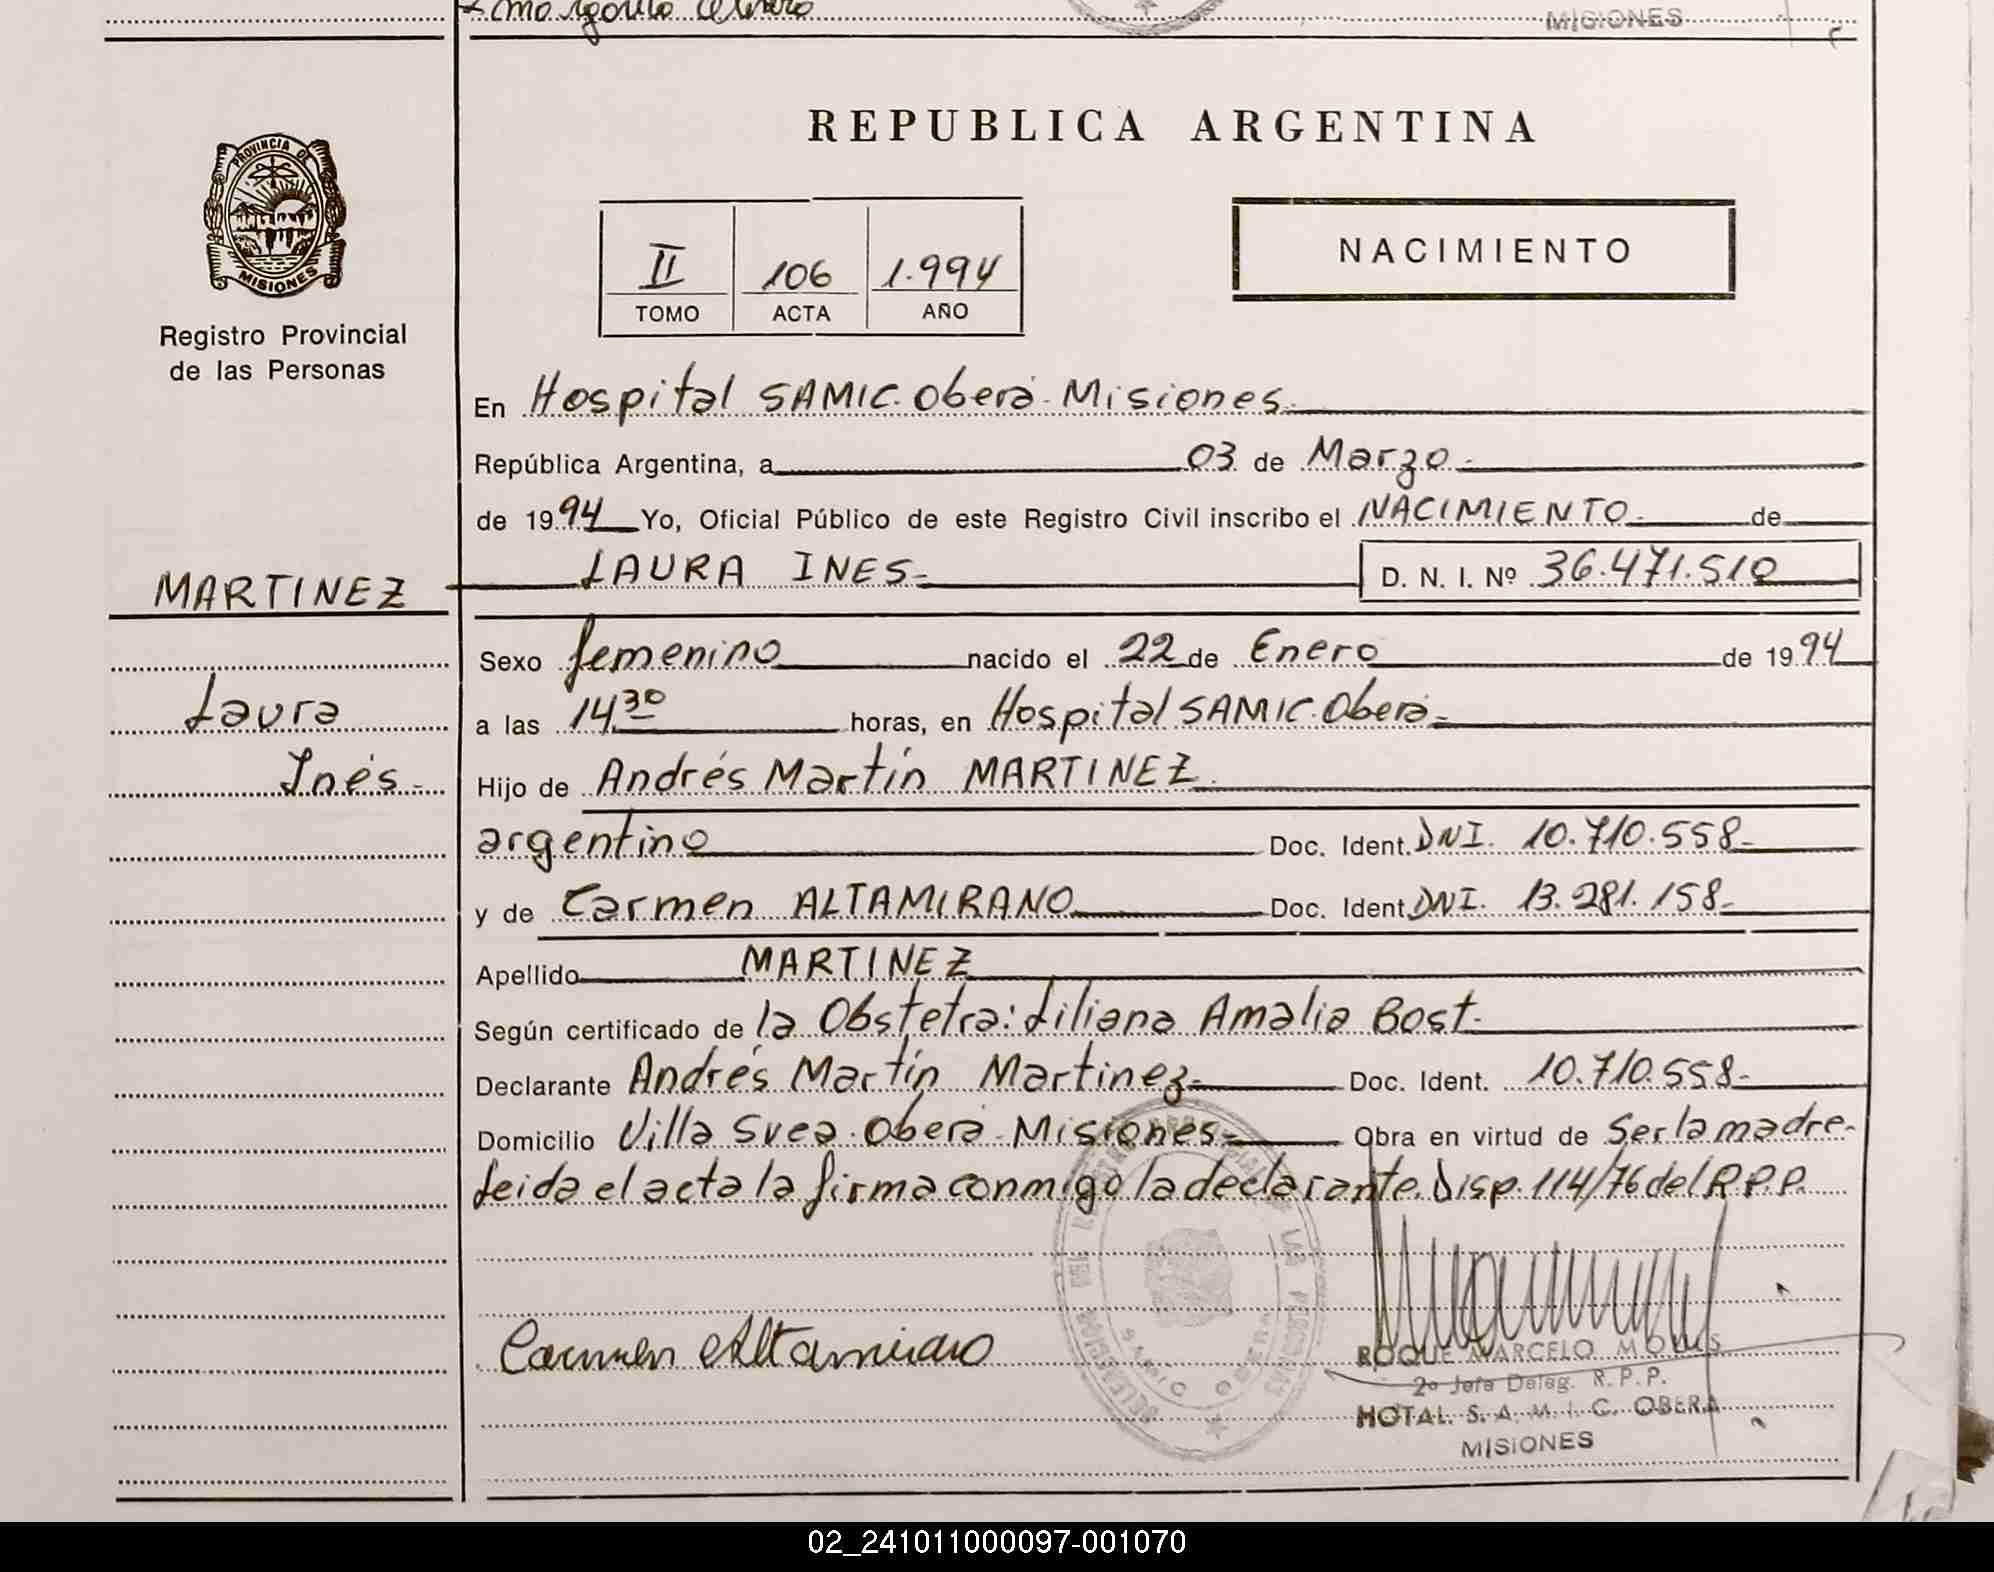 MISIONES
PROVINCIA DE
MISIONES
Registro Provincial
de las Personas
REPUBLICA ARGENTINA
II 106 1.994
TOMO ACTA AÑO
NACIMIENTO
En Hospital SAMIC. Oberá. Misiones.
República Argentina, a 03 de Marzo.
de 1994 Yo, Oficial Público de este Registro Civil inscribo el NACIMIENTO. de
MARTINEZ LAURA INES- D. N. I. Nº 36.471.510
Sexo femenino nacido el 22 de Enero de 1994
Laura a las 14.30 horas, en Hospital SAMIC. Oberá-
Inés- Hijo de Andrés Martín MARTINEZ.
argentino Doc. Ident. DNI. 10.710.558-
y de Carmen ALTAMIRANO Doc. Ident. DNI. 13.281.158-
Apellido MARTINEZ
Según certificado de la Obstetra: Liliana Amalia Bost.
Declarante Andrés Martín Martinez- Doc. Ident. 10.710.558-
Domicilio Villa Svea. Oberá. Misiones- Obra en virtud de Ser la madre-
Leida el acta la firma conmigo la declarante. Disp. 114/76 del R.P.P.
Carmen Altamirano
ROQUE MARCELO
2º Jefe Deleg. R. P. P.
HOTAL. S. A. M. I. C. OBERA
MISIONES
02_241011000097-001070